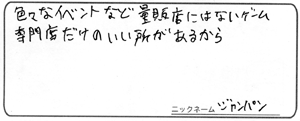 色々なイベントなど量販店にはないゲーム
専門店だけのいい所があるから
ニックネーム ジャンパン